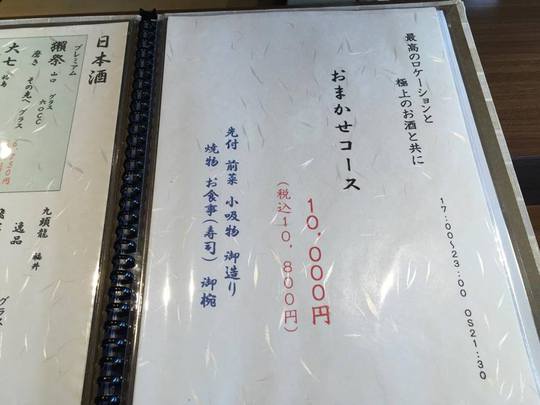 最高のロケーションと
極上のお酒と共に
17:00~23:00 OS21:30
おまかせコース
10,000円
(税込10,800円)
先付 前菜 小吸物 御造り
焼物 お食事(寿司) 御椀
日本酒
プレミアム
獺祭 山口 グラス 60CC
磨き その先へ グラス
大七
九頭龍 福井
逸品
グラス